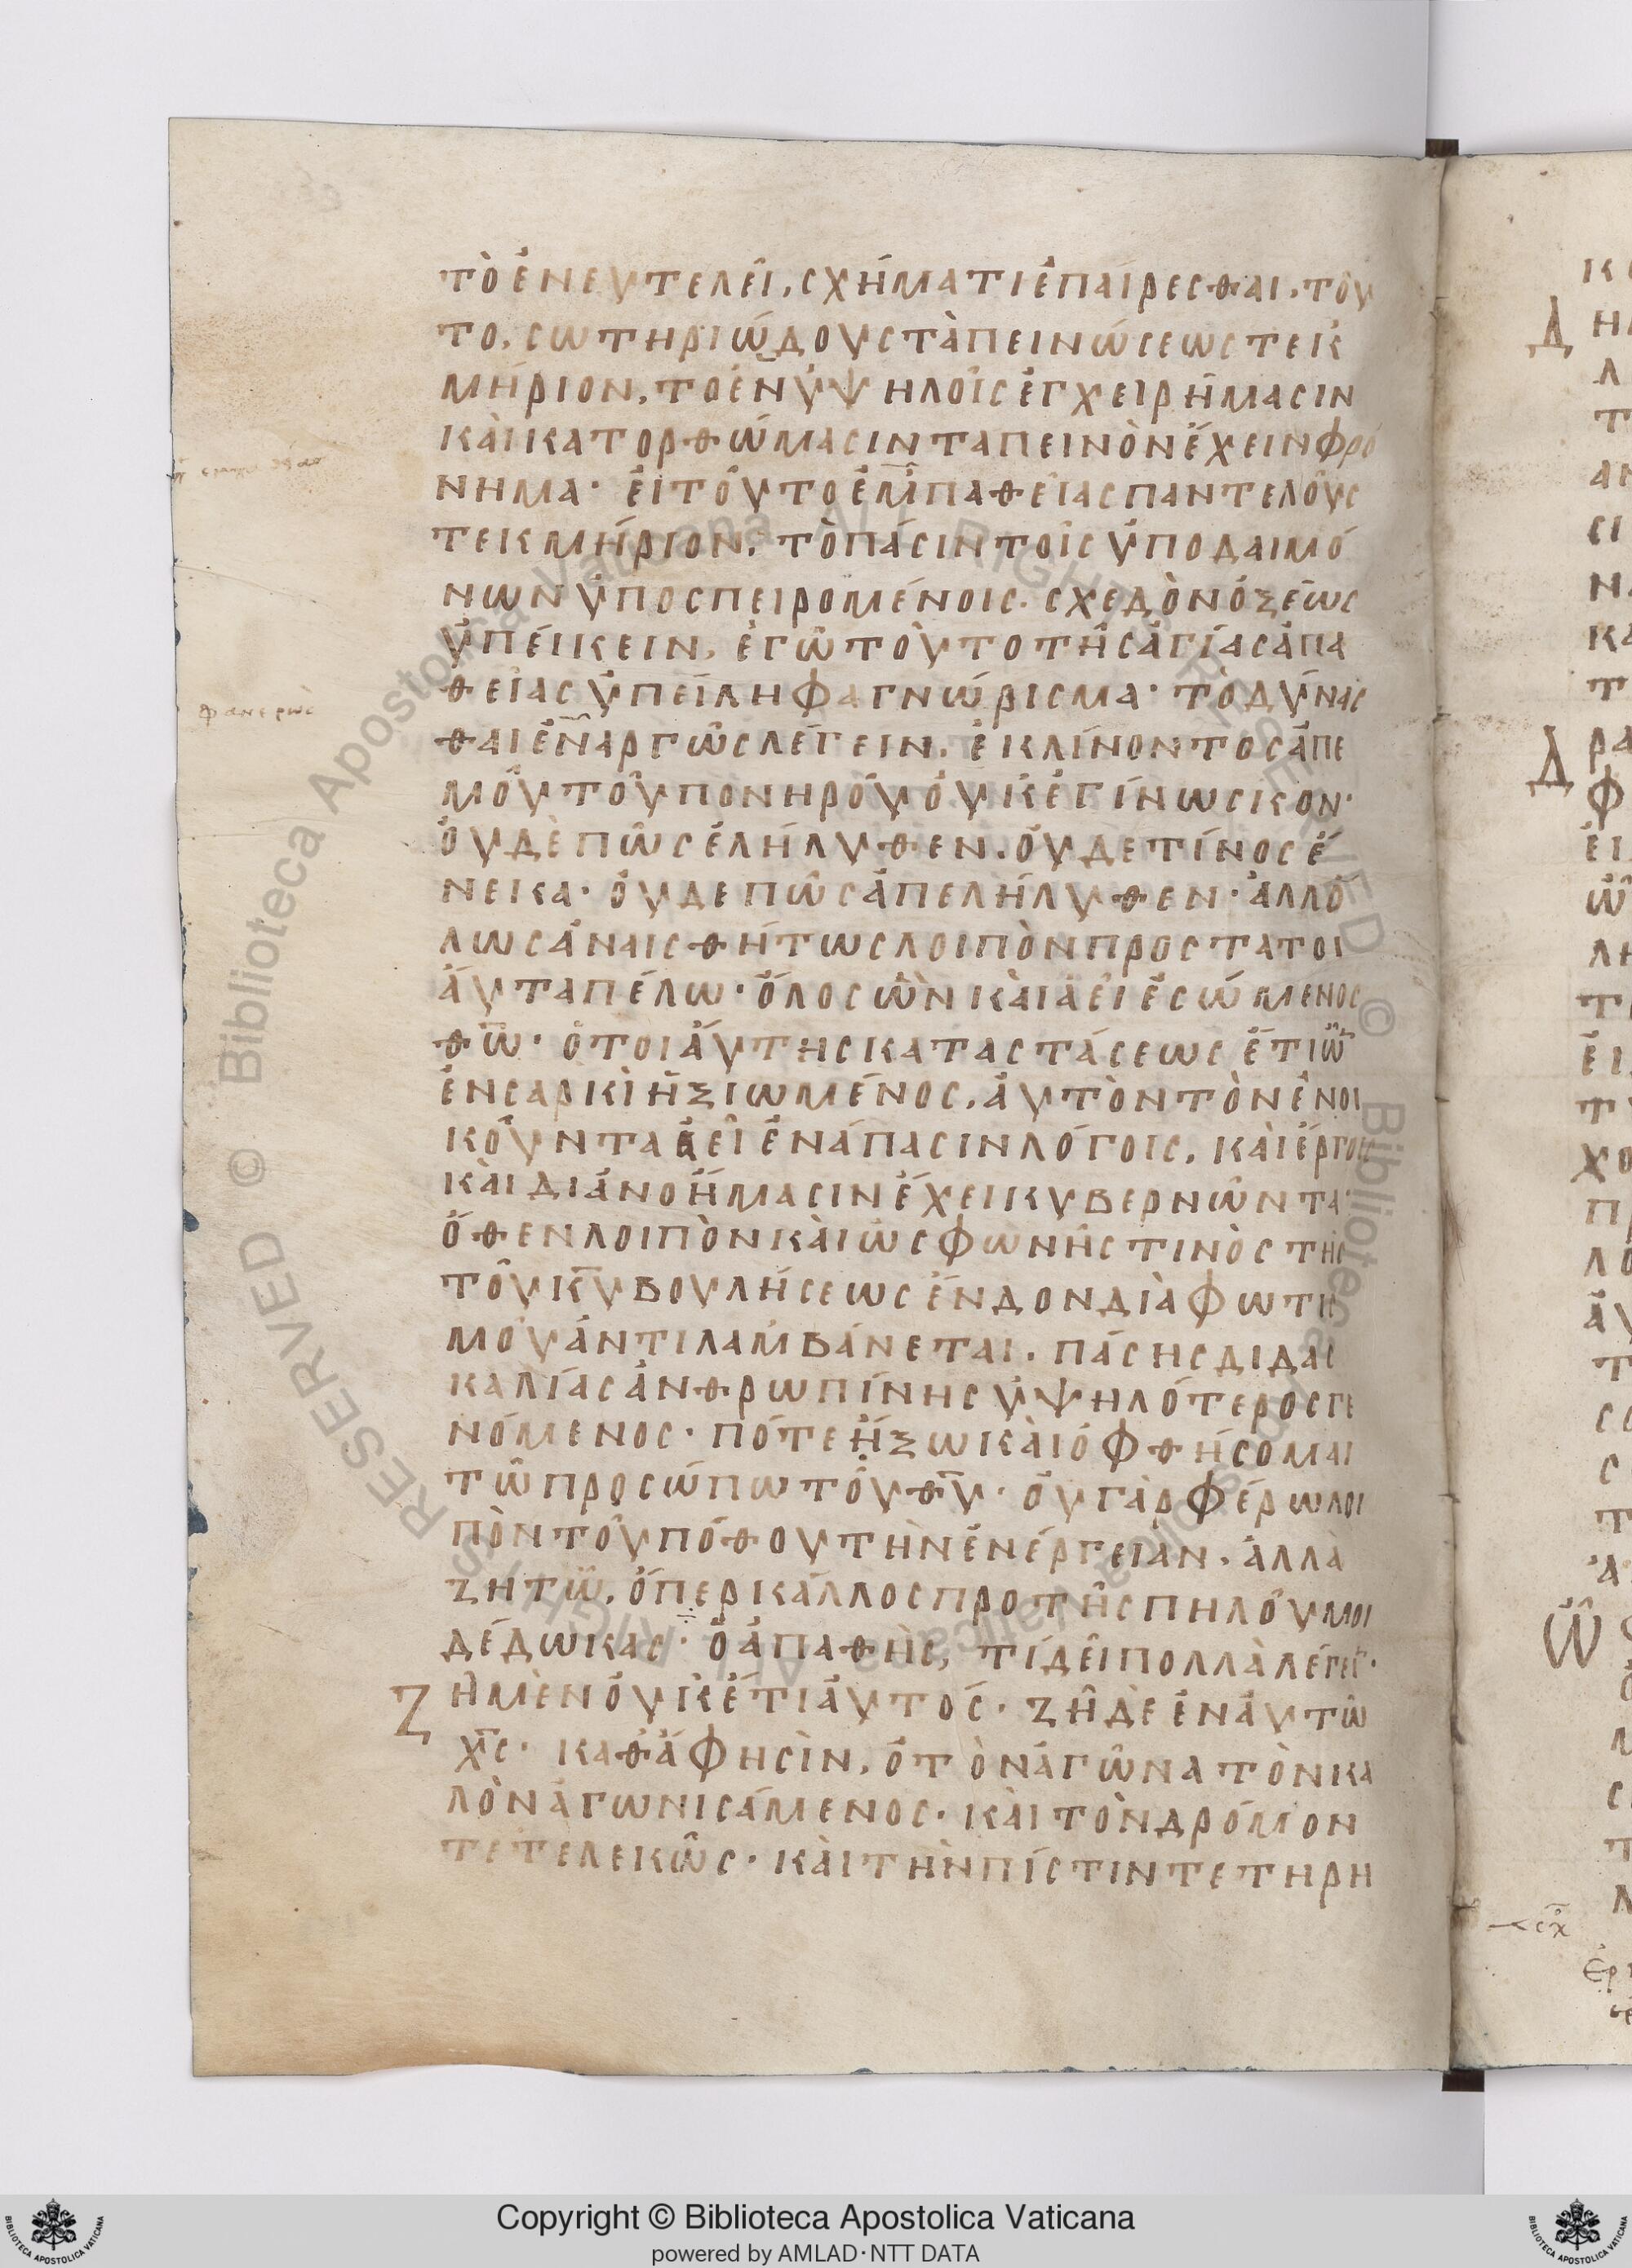 ΤῸ ἘΝΕΥΤΕΛΕῖ, ΣΧΉΜΑΤΙ ἘΠΑΊΡΕΣΘΑΙ, ΤΟΥ
ΤΟ, ΣΩΤΗΡΙΏΔΟΥΣ ΤΑΠΕΙΝΏΣΕΩΣ ΤΕΚ
ΜΉΡΙΟΝ, ΤΟ ἘΝ ὙΨΗΛΟῖΣ ἘΓΧΕΙΡΉΜΑΣΙΝ
ΚΑῚ ΚΑΤΟΡΘΏΜΑΣΙΝ ΤΑΠΕΙΝῸΝ ἜΧΕΙΝ ΦΡΌ
ΝΗΜΑ· ἘΙ ΤΟΎΤΟ ἘΜΠΑΘΕΊΑΣ ΠΑΝΤΕΛΟΥ͂Σ
ΤΕΚΜΉΡΙΟΝ, ΤῸ ΠΆΣΙΝ ΤΟῖΣ ὙΠΟ ΔΑΙΜΌ
ΝΩΝ ὙΠΟΣΠΕΙΡΟΜΈΝΟΙΣ· ΣΧΕΔῸΝ ὈΞΈΩΣ
ὙΠΈΙΚΕΙΝ, ἘΓῺ ΤΟΥ͂ΤΟ ΤΗ͂Σ ἉΓΊΑΣ ἈΠΑ
ΘΕΊΑΣ ὙΠΕΊΛΗΦΑ ΓΝΏΡΙΣΜΑ· ΤῸ ΔΎΝΑΣ
ΘΑΙ ἘΝΑΡΓΩ͂Σ ΛΈΓΕΙΝ, ἘΚΛΊΝΟΝΤΟΣ ἈΠΕ
ΜΟΎ ΤΟΥ͂ ΠΟΝΗΡΟΥ͂ ὈΥΚ ἘΓΊΝΩΣΚΟΝ·
ὈΥΔῈ ΠΩ͂Σ ἘΛΉΛΥΘΕΝ, ὈΥΔΕ ΤΊΝΟΣ Ἕ
ΝΕΚΑ· ὈΥΔΕ ΠΩ͂Σ ἈΠΕΛΉΛΥΘΕΝ· ἈΛΛΌ
ΛΩΣ ἈΝΑΙΣΘΉΤΩΣ ΛΟΙΠῸΝ ΠΡΟΣ ΤΑ ΤΟΙ
ΆΥΤΑ ΠΈΛΩ· ὍΛΟΣ ὪΝ ΚΑῚ ἈΕῚ ἘΣΏΜΕΝΟΣ
ΘΩ͂· Ὁ ΤΟΙΆΥΤΗΣ ΚΑΤΑΣΤΆΣΕΩΣ ἜΤΙ Ὢ
ἘΝ ΣΑΡΚῚ ἨΞΙΩΜΈΝΟΣ, ἈΥΤῸΝ ΤῸΝ ἘΝΟΙ
ΚΟΥ͂ΝΤΑ ἈΕῚ ἘΝ ΆΠΑΣΙΝ ΛΌΓΟΙΣ, ΚΑῚ ἜΡΓΟΙΣ
ΚΑῚ ΔΙΑΝΟΉΜΑΣΙΝ ἜΧΕΙ ΚΥΒΕΡΝΩ͂ΝΤΑ·
ὍΘΕΝ ΛΟΙΠῸΝ ΚΑῚ ὩΣ ΦΩΝΗ͂Σ ΤΙΝῸΣ ΤΗΣ
ΤΟΥ͂ ΚΥ ΒΟΥΛΉΣΕΩΣ ἜΝΔΟΝ ΔΙᾺ ΦΩΤΙΣ
ΜΟΥ͂ ἈΝΤΙΛΑΜΒΆΝΕΤΑΙ, ΠΆΣΗΣ ΔΙΔΑΣ
ΚΑΛΊΑΣ ἈΝΘΡΩΠΊΝΗΣ ὙΨΗΛΌΤΕΡΟΣ ΓΕ
ΝΌΜΕΝΟΣ· ΠΌΤΕ ἭΞΩ ΚΑῚ ὈΦΘΉΣΟΜΑΙ
ΤΩ͂ ΠΡΟΣΏΠΩ ΤΟΥ͂ ΘΥ· ὈΥ ΓᾺΡ ΦΈΡΩ ΛΟΙ
ΠῸΝ ΤΟΥ͂ ΠΌΘΟΥ ΤῊΝ ἘΝΈΡΓΕΙΑΝ, ἈΛΛᾺ
ΖΗΤΩ͂, ὍΠΕΡ ΚΆΛΛΟΣ ΠΡΟ ΤΗ͂Σ ΠΗΛΟΥ͂ ΜΟΙ
ΔΈΔΩΚΑΣ· Ὁ ἈΠΑΘῊΣ, ΤΊ ΔΕῖ ΠΟΛΛᾺ ΛΈΓΕΙ·
ΖΗ͂ ΜῈΝ ὈΥΚΈΤΙ ἈΥΤΌΣ· ΖΗ͂ ΔῈ ἘΝ ἈΥΤΩ͂
ΧΣ· ΚΑΘᾺ ΦΗΣῚΝ, Ὁ ΤῸΝ ἈΓΩ͂ΝΑ ΤῸΝ ΚΑ
ΛῸΝ ἈΓΩΝΙΣΆΜΕΝΟΣ· ΚΑῚ ΤῸΝ ΔΡΌΜΟΝ
ΤΕΤΕΛΕΚΩ͂Σ· ΚΑῚ ΤῊΝ ΠΊΣΤΙΝ ΤΕΤΗΡΗ
φανερῶς
Copyright © Biblioteca Apostolica Vaticana
powered by AMLAD·NTT DATA